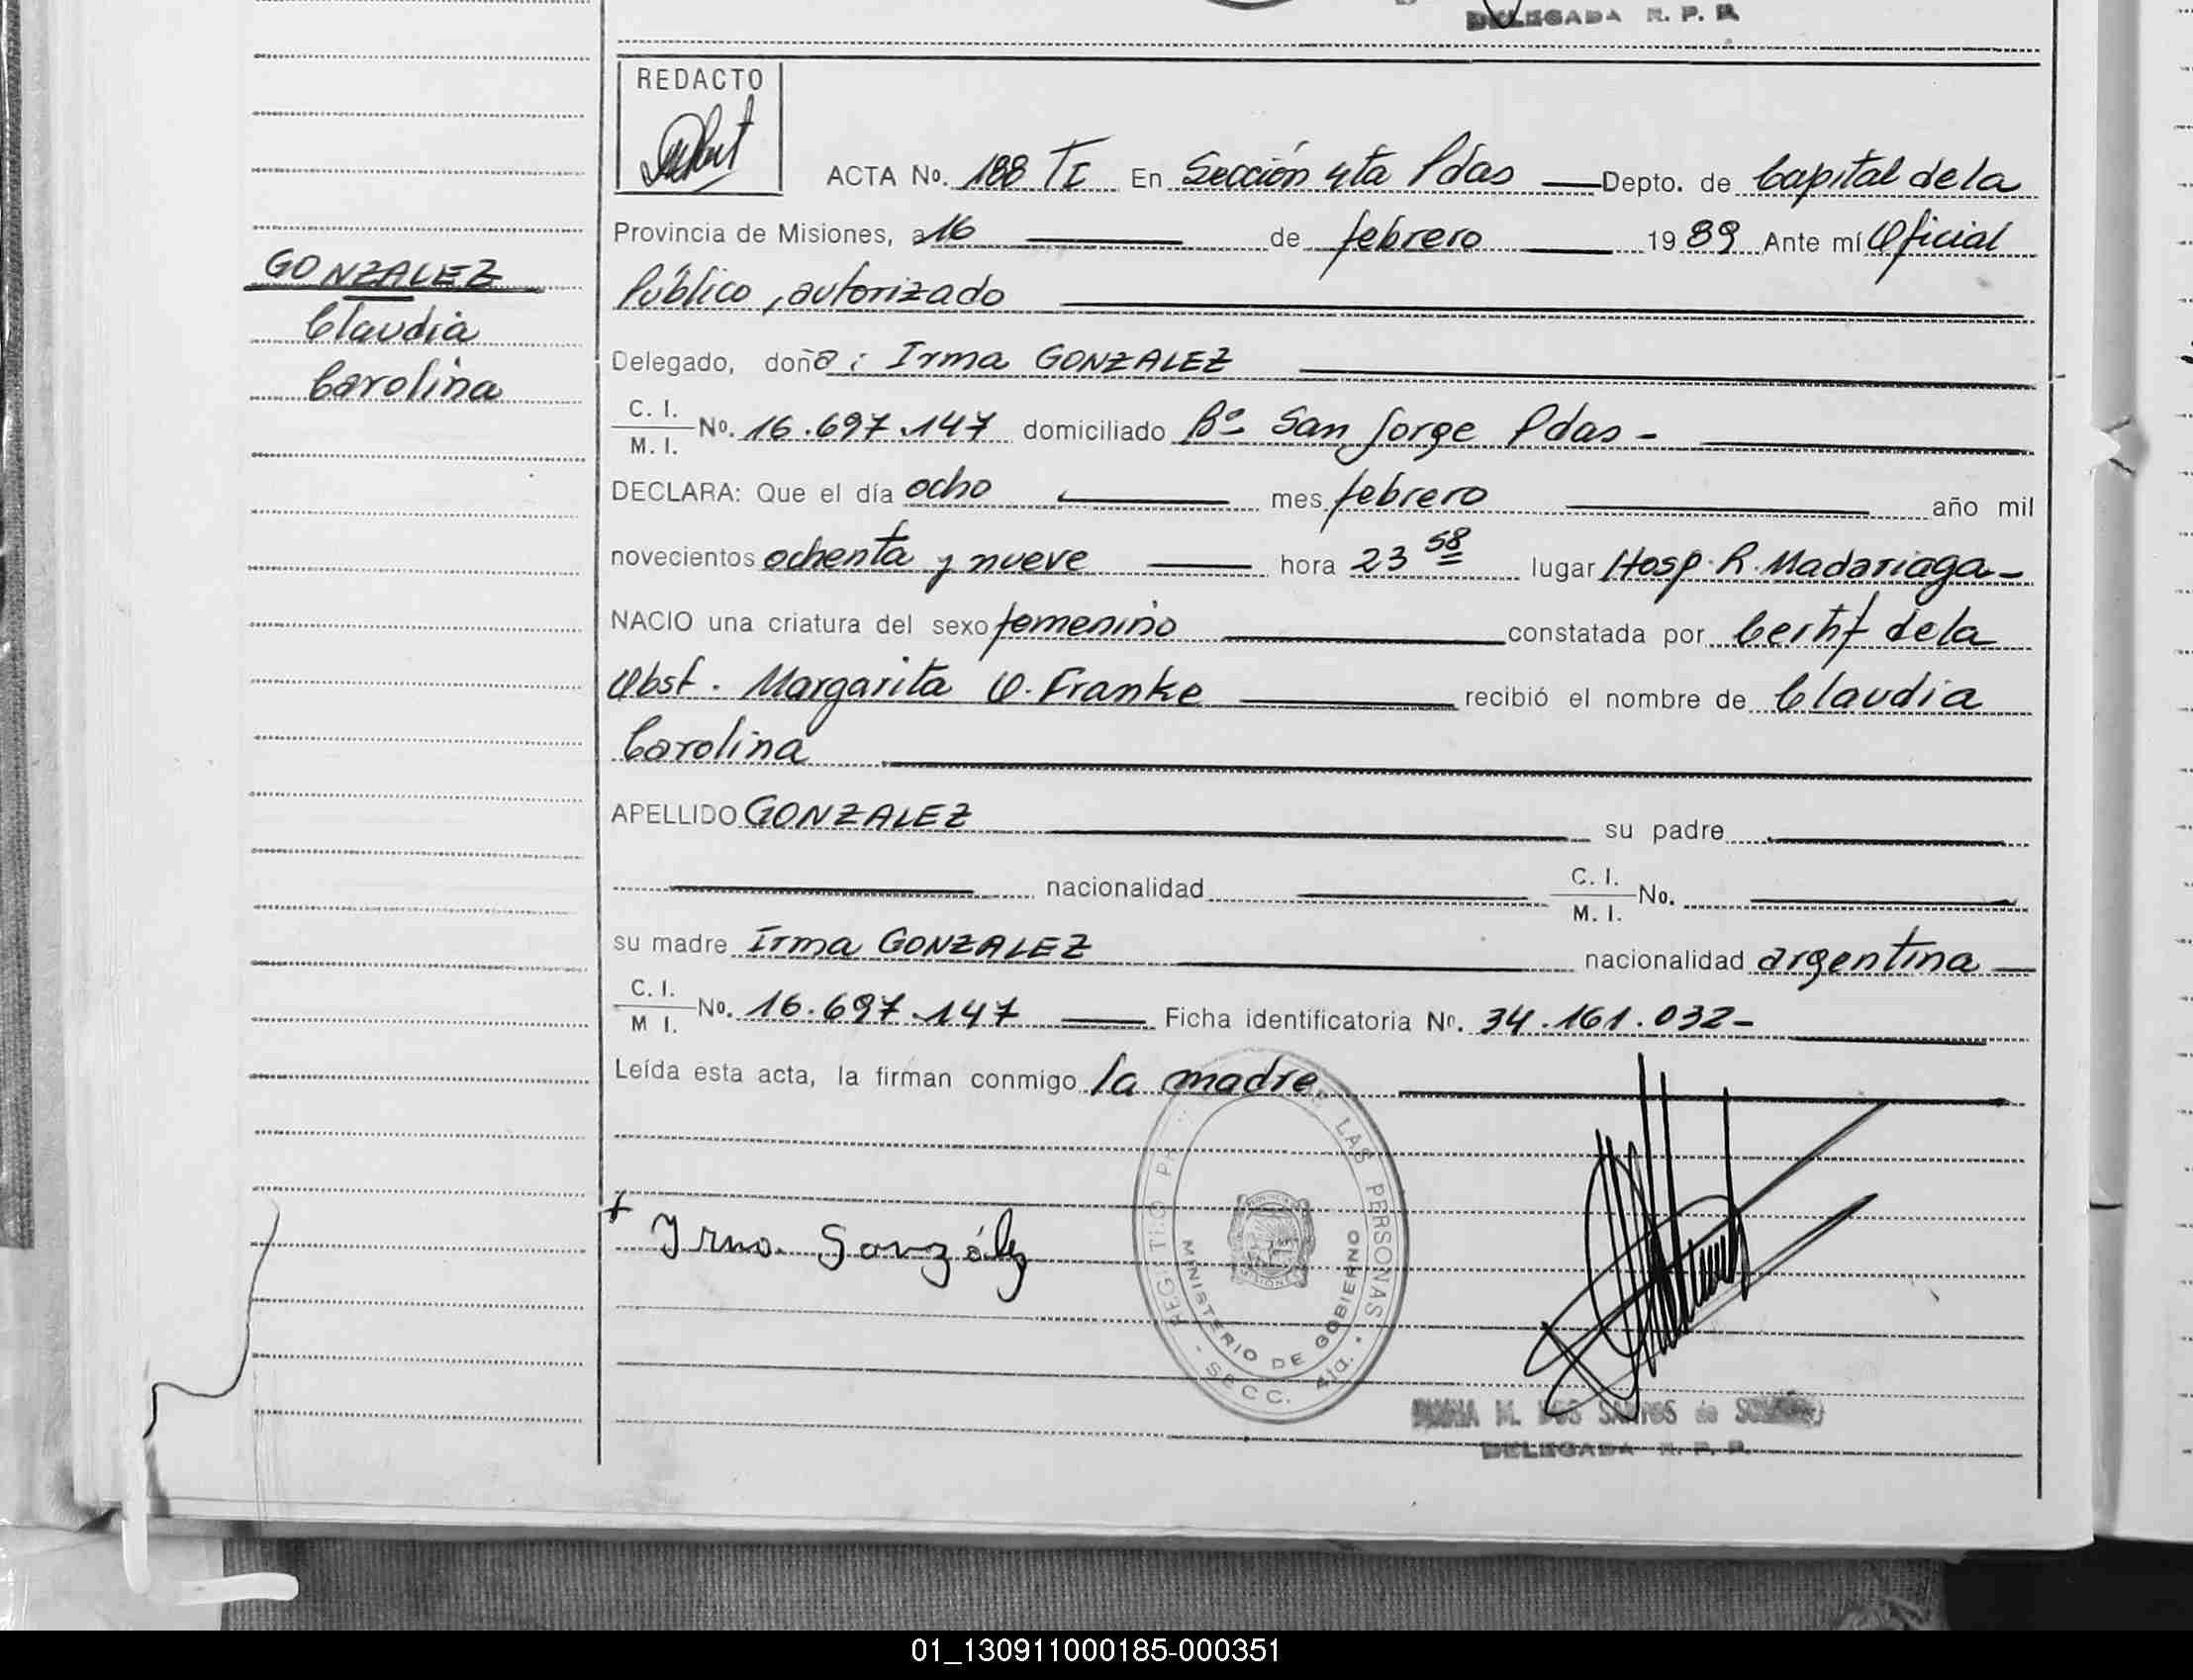 DELEGADA R. P. P.
REDACTO
ACTA No. 188 TI En Sección 4ta Pdas Depto. de Capital de la
Provincia de Misiones, a 16 de febrero 1989 Ante mí Oficial
Público, autorizado
GONZALEZ
Claudia
Carolina
Delegado, doña : Irma GONZALEZ
C. I.
M. I. No. 16.697.147 domiciliado Bº San Jorge Pdas -
DECLARA: Que el día ocho mes febrero año mil
novecientos ochenta y nueve hora 23 58 lugar Hosp. R. Madariaga-
NACIO una criatura del sexo femenino constatada por Certif de la
Obst. Margarita O. Franke recibió el nombre de Claudia
Carolina
APELLIDO GONZALEZ su padre
nacionalidad C. I.
M. I. No.
su madre Irma GONZALEZ nacionalidad argentina
C. I.
M I. No. 16.697.147 Ficha identificatoria No. 34.161.032-
Leída esta acta, la firman conmigo la madre
+ Irma González
LAS PERSONAS
MINISTERIO DE GOBIERNO
SECC. 4ta.
M. DOS SANTOS de
DELEGADA R. P. P.
01_130911000185-000351